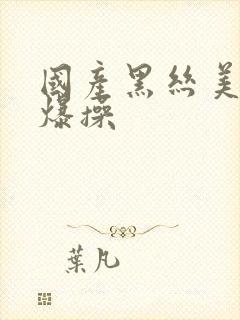 國產黑絲美
爆操
葉凡